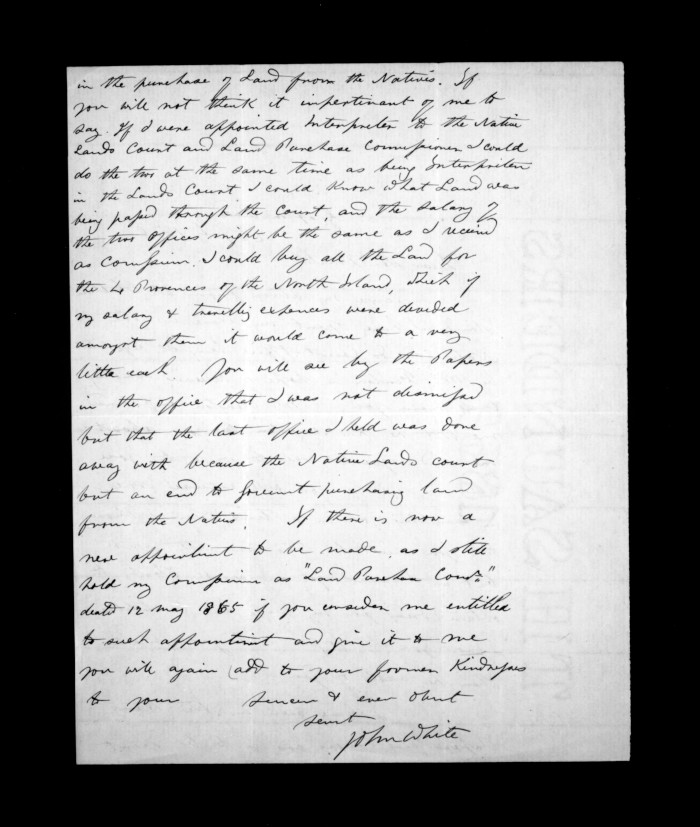 in the purchase of Land from the Natives. If
you will not think it impertinant of me to
say. If I were appointed Interpreter to the Native
Lands Court and Land Purchase Commissioner I could
do the two at the same time as being Interpreter
in the Lands Court I could know what Land was
being passed through the Court, and the salary of
the two offices might be the same as I received
as Comissinr. I could buy all the Land for
the 4 Provences of the North Island, which if
my salary & travellig expences were devided
amongst them it would come to a very
little each. You will see by the Papers
in the office that I was not dismissed
but that the last office I held was done
away with because the Native Lands court
but an end to Goverment purchasing land
from the Natives. If there is now a
new appointment to be made, as I still
hold my Comission as "Land Purchase Comr."
deatd 12 may 1865 if you consider me entitled
to such appointment and give it to me
you will again add to your former Kindnesses
to your sincere & ever obent
servt
John White